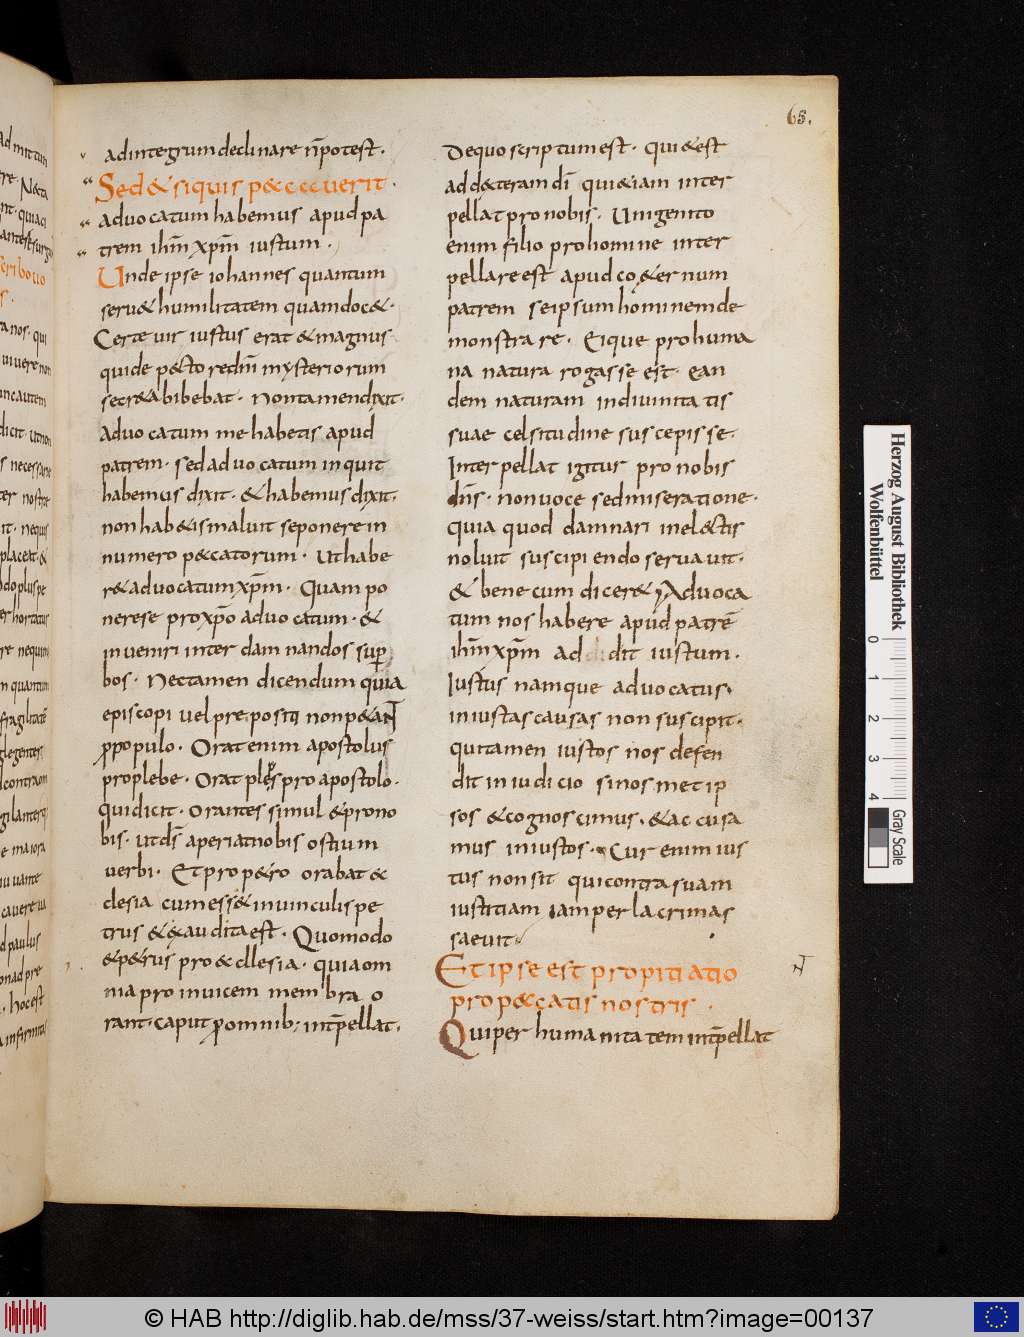 65.
ad mittun
ad integrum declinare n̄ potest.
Sed & si quis p&ccauerit.
aduocatum habemus apud pa
trem ihm̄ xpm̄ iustum.
Unde ipse iohannes quantum
seru& humilitatem quam doc&.
Certe uir iustus erat & magnus
qui de p&to redm̄i mysteriorum
secr&a bibebat. Non tamen dixit.
aduocatum me habetis apud
patrem. sed aduocatum inquit
habemus dixit. & habemus dixit.
non hab&is maluit se ponere in
numero p&ccatorum. Ut habe
r& aduocatum xpm̄. Quam po
nere se pro xp̄o aduocatum. &
inueniri inter damnandos sup̱er
bos. Nec tamen dicendum quia
episcopi uel prepositi non p&ant
ꝓ populo. Orat enim apostolus
pro plebe. Orat plebs pro apostolo.
qui dicit. Orantes simul & pro no
bis. ut ds̄ aperiat nobis ostium
uerbi. Et pro p&ro orabat &
clesia cum ess& in uinculis pe
trus & exaudita est. Quomodo
& p&rus pro &cllesia. quia om
nia pro inuicem membra o
rant. caput ꝓ omnib; int̄pellat.
De quo scriptum est. qui & est
ad d&teram dī qui &iam inter
pellat pro nobis. Unigenito
enim filio pro homine inter
pellare est apud co&ernum
patrem se ipsum hominem de
monstrare. Eique pro huma
na natura rogasse est. ean
dem naturam in diuinitatis
suae celsitudine suscepisse.
Interpellat igitur pro nobis
dn̄s. non uoce sed miseratione.
quia quod damnari in el&tis
noluit suscipiendo seruauit.
& bene cum dicer& Aduoca
tum nos habere apud patrē
ihm̄ xpm̄ addidit iustum.
Iustus namque aduocatus.
iniustas causas non suscipit.
qui tamen iustos nos defen
dit in iudicio si nosmet ip
sos & cognoscimus. & accusa
mus iniustos. Cur enim ius
tus non sit qui contra suam
iustitiam iam per lacrimas
saeuit.
Et ipse est propitiatio
pro p&catis nostris.
Qui per humanitatem int̄pellat
Herzog August Bibliothek
Wolfenbüttel
0 1 2 3 4
Gray Scale
© HAB http://diglib.hab.de/mss/37-weiss/start.htm?image=00137